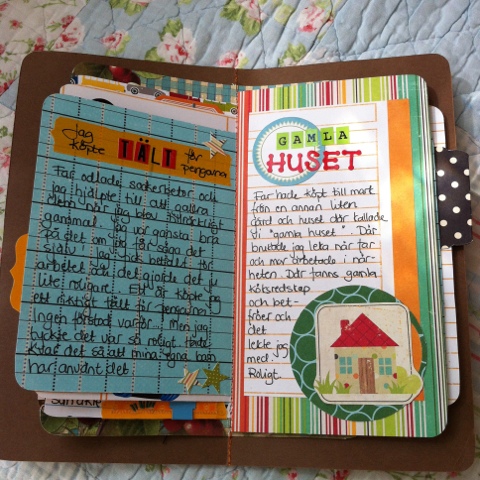 Jag
köpte TÄLT för
pengarna
Far odlade sockerbetor och
jag hjälpte till att gallra
dem när jag blev tillräckligt
gammal. Jag var ganska bra
på det om jag får säga det
själv. Jag fick betalt för
arbetet och det gjorde det ju
lite roligare. Ett år köpte jag
ett riktigt tält för pengarna
Ingen förstod varför. Men jag
tyckte det var så roligt
det så att mina egna barn
har använt det
GAMLA
HUSET
Far hade köpt till mark
från en annan liten
gård och huset där kallade
vi "gamla huset". Där
brukade jag leka när far
och mor arbetade i när-
heten. Där fanns gamla
köksredskap
och bet-
fröer och
det
lekte jag
med.
Roligt.